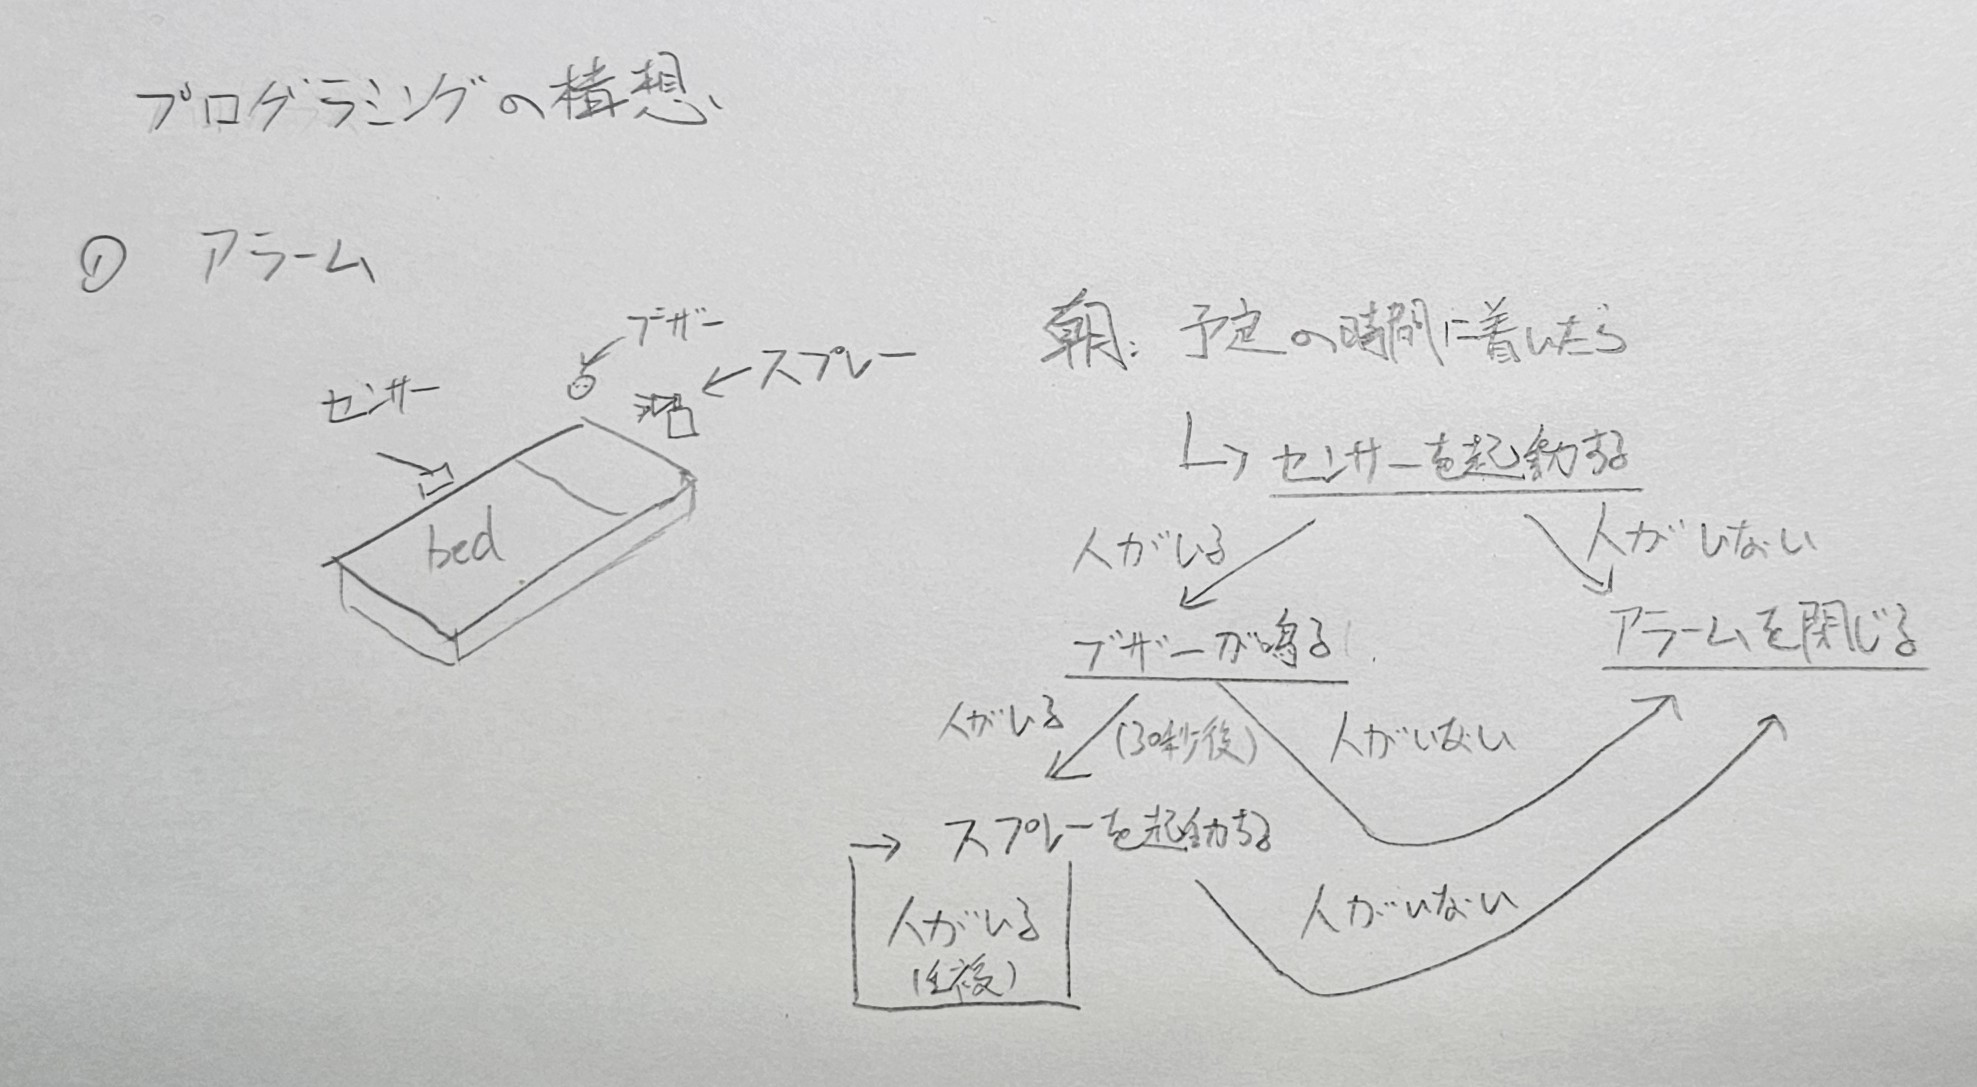 プログラミングの構想
① アラーム
ブザー
スプレー
センサー
bed
朝: 予定の時間に着いたら
センサーを起動する
人がいる
人がいない
ブザーが鳴る
アラームを閉じる
人がいる
(30秒後)
人がいない
スプレーを起動する
人がいる
人がいない